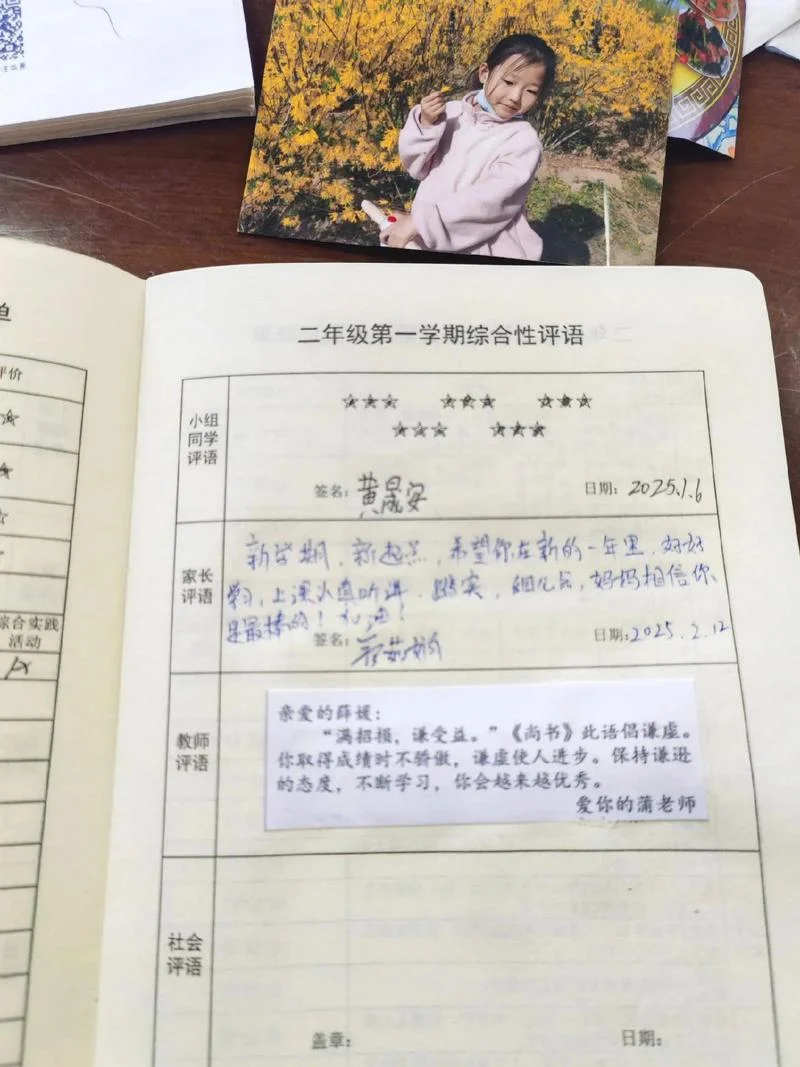 评价
综合实践
活动
二年级第一学期综合性评语
小组
同学
评语
☆☆☆ ☆☆☆ ☆☆☆
☆☆☆ ☆☆☆
签名：黄晟安 日期：2025.1.6
家长
评语
新学期，新起点，希望你在新的一年里，好好
学习，上课认真听讲，踏实，细心点，妈妈相信你、
是最棒的！加油！
签名： 日期：2025.2.12
教师
评语
亲爱的薛媛：
“满招损，谦受益。”《尚书》此语倡谦虚。
你取得成绩时不骄傲，谦虚使人进步。保持谦逊
的态度，不断学习，你会越来越优秀。
爱你的蒲老师
社会
评语
盖章： 日期：